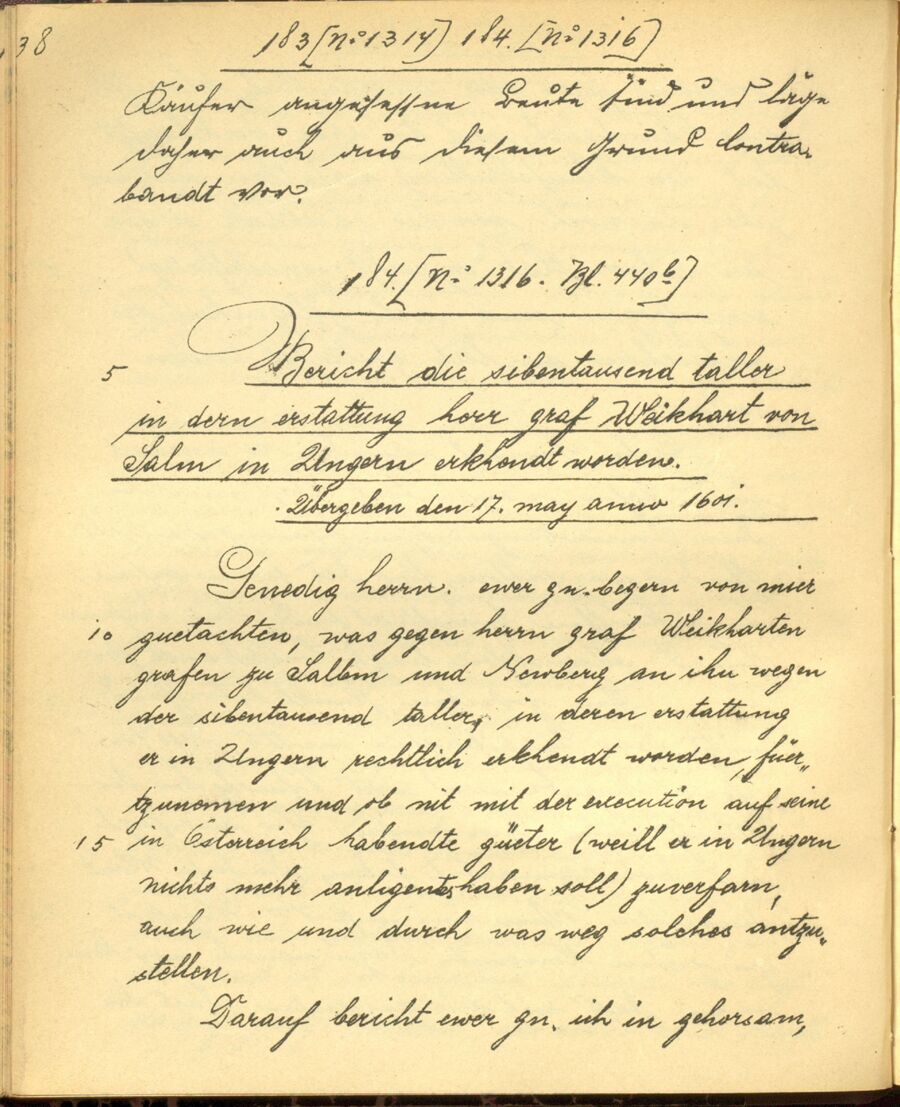 38
183 [No 1314] 184. [No 1316]
Käufer angesessne Leute sind und läge
daher auch aus diesem Grund Contra-
bandt vor.
184. [No 1316. Bl. 440b]
5 Bericht die sibentausend taller
in dern erstattung herr graf Weikhart von
Salm in Ungern erkhendt worden.
Übergeben den 17. may anno 1601.
Genedig herrn. ewer gn. begern von mier
10 guetachten, was gegen herrn graf Weikharten
grafen zu Salbm und Newberg an ihn wegen
der sibentausend taller, in deren erstattung
er in Ungern rechtlich erkhendt worden, füer„
tzunemen und ob nit mit der execution auf seine
15 in Österreich habendte güeter (weill er in Ungern
nichts mehr anligents haben soll) zuverfarn,
auch wie und durch was weg solches antzu„
stellen.
Darauf bericht ewer gn. ich in gehorsam,